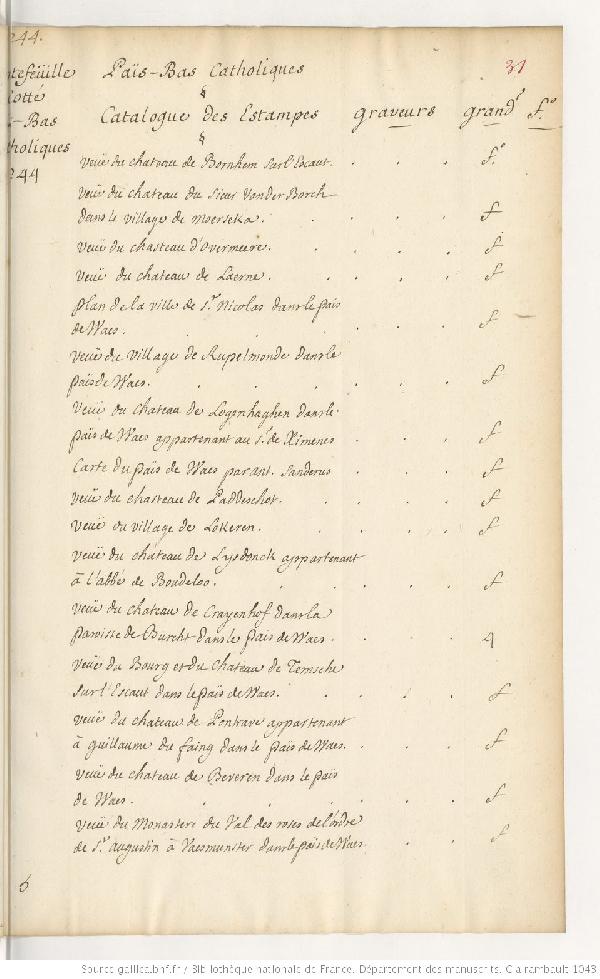 244.
tefeüille
Cotté
-Bas
tholiques
244
Païs-Bas Catholiques
31
§
Catalogue des Estampes graveurs grandr f.o
§
veüe du chateau de Bornhem sur l'Escaut. f.o
veüe du chateau du Sieur Vander Borch
dans le village de moerseka. f
veüe du chasteau d'overmeere. f
veüe du chateau de Laerne. f
plan de la ville de S.t Nicolas dans le païs
de Waes. f
veüe du village de Rupelmonde dans le
païs de Waes. f
veüe du chateau de Legenhaghen dans le
païs de Waes appartenant au S.r de Ximenes f
Carte du païs de Waes par ant. Sanderus f
veüe du chasteau de Paddeschot. f
veüe du village de Lokeren. f
veüe du château de Lysdonck appartenant
à l'abbé de Boudeloo. f
veüe du chateau de Crayenhof dans la
paroisse de Burcht dans le païs de Waes. 4
veüe du Bourg et du chateau de Temsche
sur l'Escaut dans le païs de Waes. f
veüe du chateau de Pontrave appartenant
à guillaume du faing dans le païs de Waes. f
veüe du chateau de Beveren dans le païs
de Waes. f
veüe du Monastere du Val des roses de l'ordre
de S.t augustin à Vaesmunster dans le païs de Waes. f
6
Source gallica.bnf.fr / Bibliothèque nationale de France. Département des manuscrits. Clairambault 1043